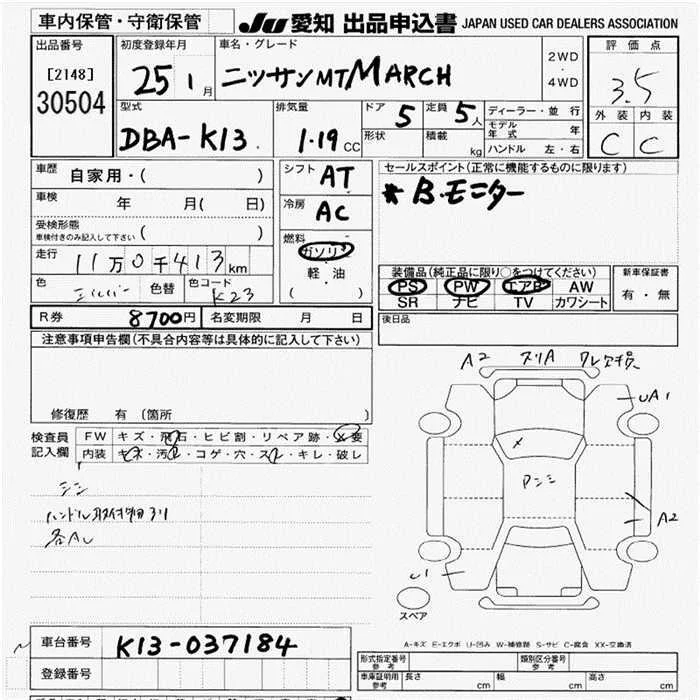 車内保管・守衛保管
JU 愛知 出品申込書 JAPAN USED CAR DEALERS ASSOCIATION
出品番号
[2148]
30504
初度登録年月
25 1月
車名・グレード
ニッサンMT MARCH
2WD
・
4WD
評価点
3.5
外装 内装
C C
型式
DBA-K13
排気量
1.19 CC
ドア 5
形状
定員 5人
積載 kg
ディーラー・並行
モデル年式 年
ハンドル 左・右
車歴 自家用・( )
車検 年 月( 日)
受検形態
車検付きのみ記入して下さい ( )
走行 11万0千413km
色 シルバー 色替 色コード K23
シフト AT
冷房 AC
燃料
ガソリン
軽・油
( )
セールスポイント(正常に機能するものに限ります)
* B.モニター
装備品(純正品に限り○をつけてください)
PS PW エアB AW
SR ナビ TV カワシート
新車保証書
有・無
R券 8700円 名変期限 月 日
後日品
注意事項申告欄(不具合内容等は具体的に記入して下さい)
修復歴 有(箇所 )
検査員
記入欄
FW キズ・飛石・ヒビ割・リペア跡・X要
内装 キズ・汚レ・コゲ・穴・スレ・キレ・破レ
シミ
A2 スリA
UA1
X
A2
U1
スペア
A-キズ E-エクボ U-凹み W-補修跡 S-サビ C-腐食 XX-交換済
車台番号 K13-037184
登録番号
形式指定番号
参考
類別区分番号
参考
車庫証明用
参考
長さ cm 幅 cm 高さ cm